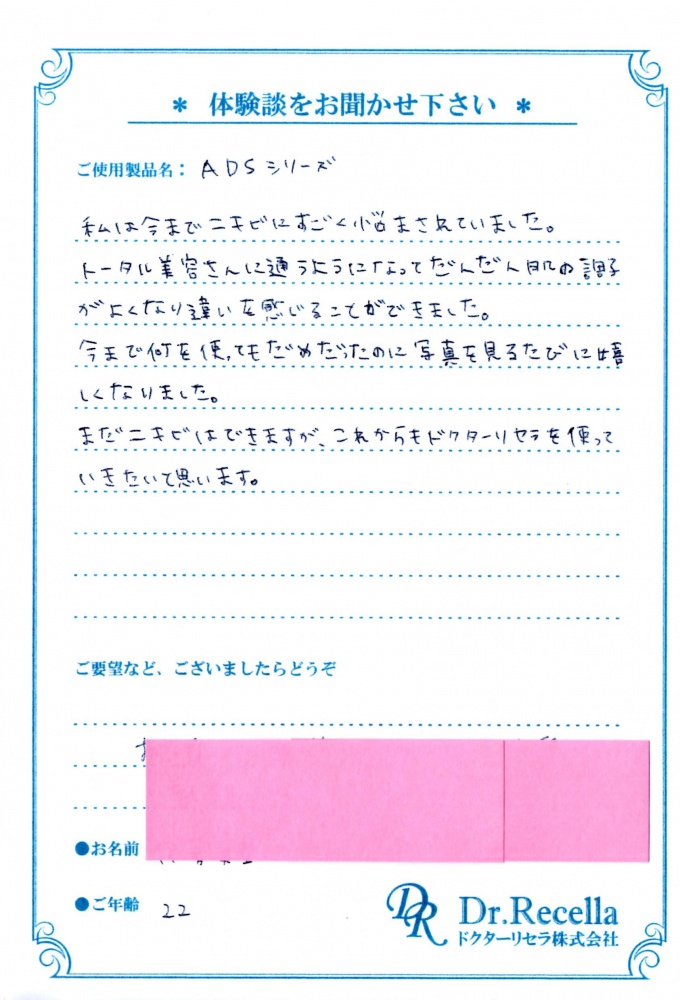 * 体験談をお聞かせ下さい *
ご使用製品名： ADSシリーズ
私は今までニキビにすごく悩まされていました。
トータル美容さんに通うようになってだんだん肌の調子
がよくなり違いを感じることができました。
今まで何を使ってもだめだったのに写真を見るたびに嬉
しくなりました。
まだニキビはできますが、これからもドクターリセラを使って
いきたいて思います。
ご要望など、ございましたらどうぞ
●お名前
●ご年齢 22
DR Dr.Recella
ドクターリセラ株式会社